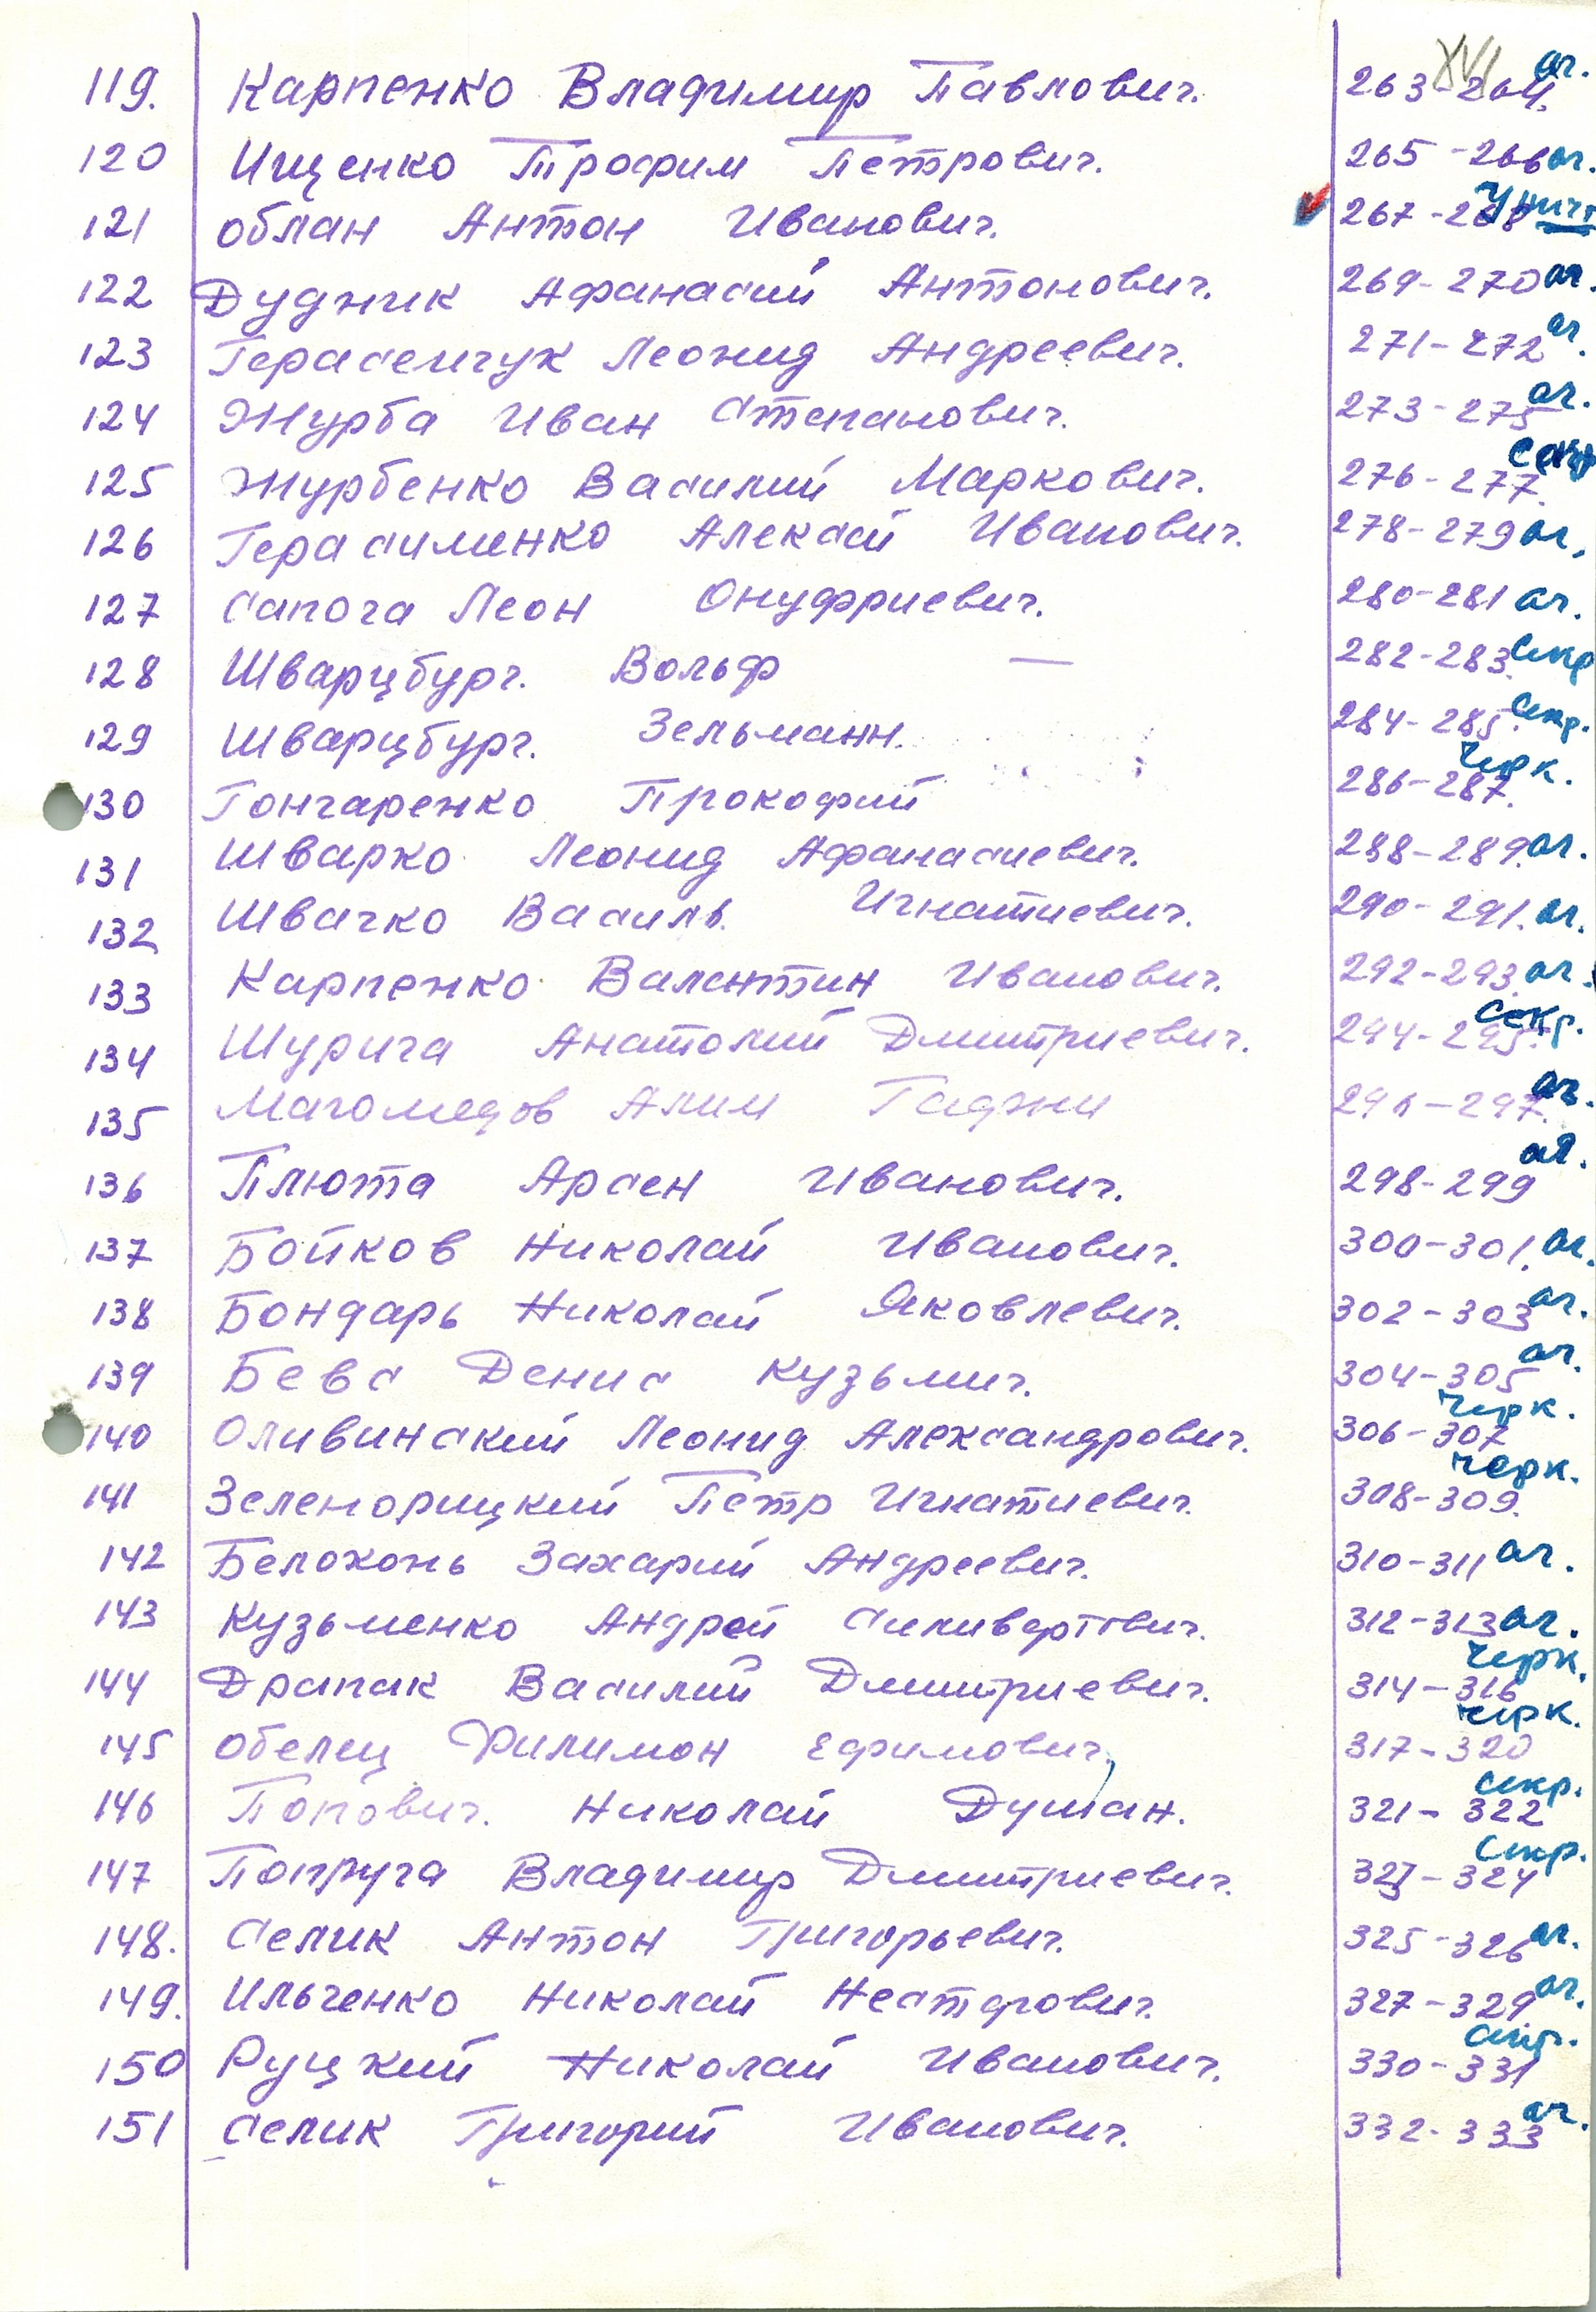 XVI
119. Карпенко Владимир Павлович. 263-264. аг.
120 Ищенко Трофим Петрович. 265-266 аг.
121 Облан Антон Иванович. 267-268 Уничт
122 Дудник Афанасий Антонович. 269-270 аг.
123 Герасемчук Леонид Андреевич. 271-272 аг.
124 Журба Иван Степанович. 273-275 аг.
125 Журбенко Василий Маркович. 276-277.
126 Герасименко Алексей Иванович. 278-279 аг.
127 Сапога Леон Онуфриевич. 280-281 аг.
128 Шварцбург. Вольф — 282-283. Секр
129 Шварцбург. Зельманн. 284-285. Секр.
130 Гончаренко Прокофий 286-287. Черк.
131 Шварко Леонид Афанасиевич. 288-289. аг.
132 Швачко Василь. Игнатиевич. 290-291. аг.
133 Карпенко Валентин Иванович. 292-293. аг.
134 Шурига Анатолий Дмитриевич. 294-295. Секр.
135 Магомедов Алим Гаджи 296-297. аг.
136 Плюта Арсен Иванович. 298-299 аг.
137 Бойков Николай Иванович. 300-301. аг.
138 Бондарь Николай Яковлевич. 302-303 аг.
139 Бевс Денис Кузьмич. 304-305 аг.
140 Оливинский Леонид Александрович. 306-307 Черк.
141 Зеленорицкий Пётр Игнатиевич. 308-309. Черк.
142 Белоконь Захарий Андреевич. 310-311 аг.
143 Кузьменко Андрей Силивертович. 312-313 аг.
144 Драпак Василий Дмитриевич. 314-316 Черк.
145 Обелец Филимон Ефимович. 317-320 Черк.
146 Попович. Николай Душан. 321-322 Секр.
147 Попруга Владимир Дмитриевич. 323-324 Секр.
148. Селик Антон Григорьевич. 325-326 аг.
149. Ильченко Николай Нестерович. 327-329 аг.
150 Руцкий Николай Иванович. 330-331 Секр.
151 Селик Григорий Иванович. 332-333 аг.